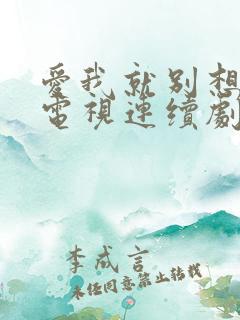 愛我就別想
電視連續劇
李成言
未任同意禁止轉載